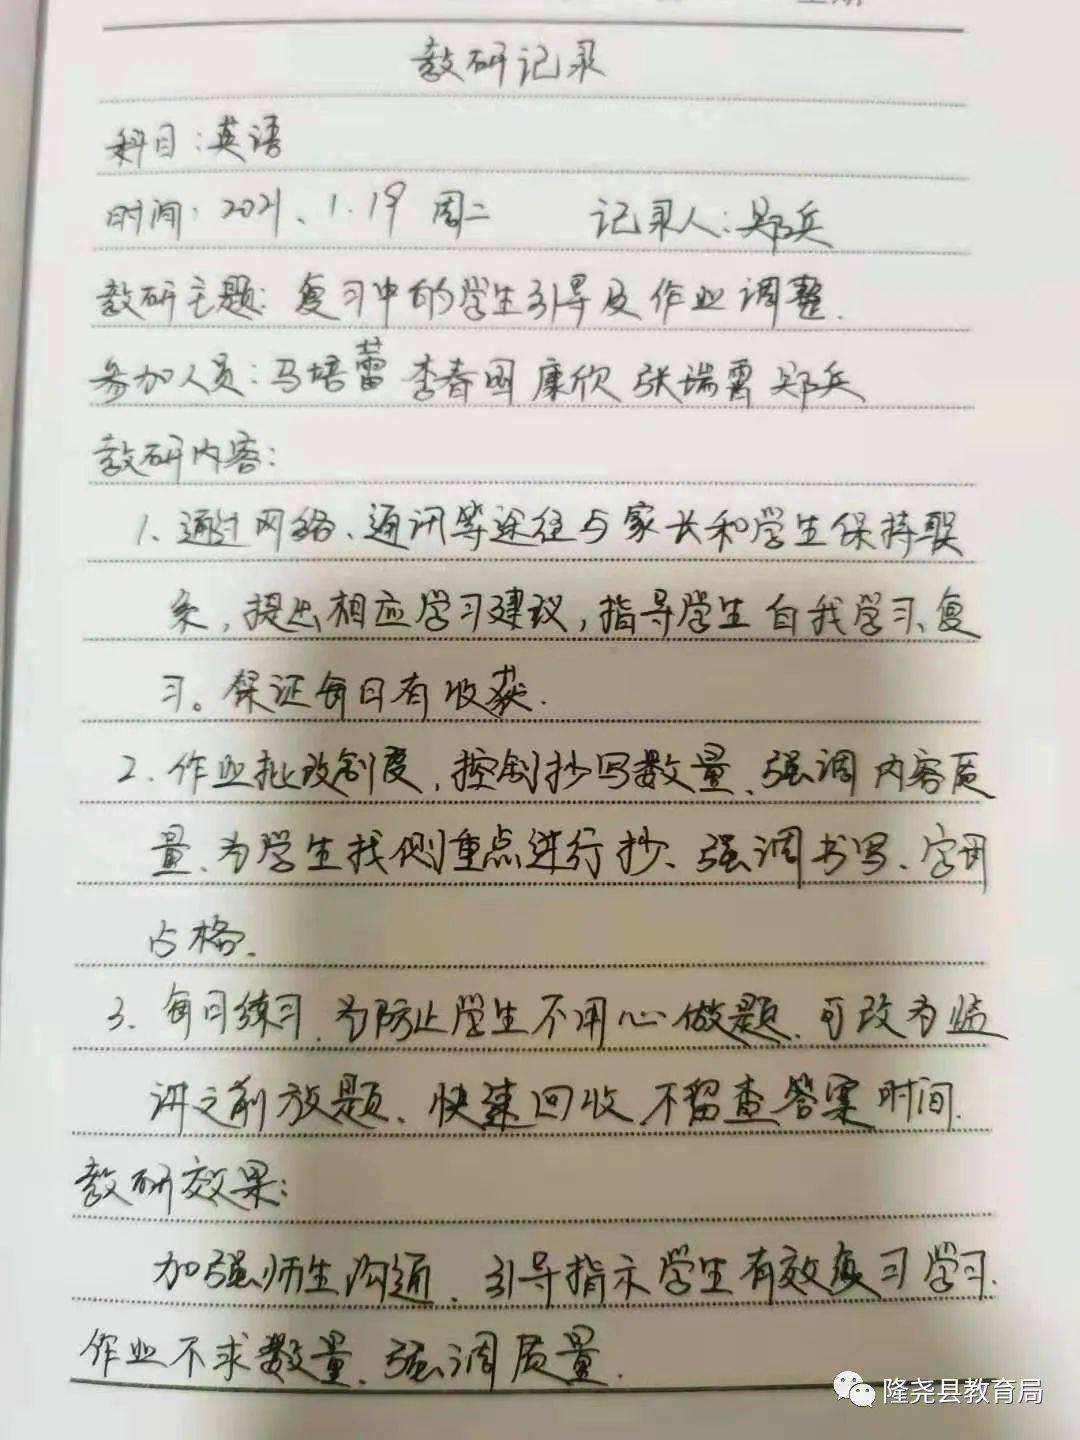 教研记录
科目:英语
时间:2021、1.19 周二 记录人:郑兵
教研主题:复习中的学生引导及作业调整.
参加人员:马培蕾 李春国 康欣 张瑞霄 郑兵
教研内容:
1、通过网络、通讯等途径与家长和学生保持联
系,提出相应学习建议,指导学生自我学习、复
习。保证每日有收获.
2、作业批改制度,控制抄写数量、强调内容质
量、为学生找侧重点进行抄、强调书写、字词
占格.
3、每日练习,为防止学生不用心做题,可改为临
讲之前放题、快速回收,不留查答案时间.
教研效果:
加强师生沟通、引导指示学生有效复习学习.
作业不求数量、强调质量.
隆尧县教育局